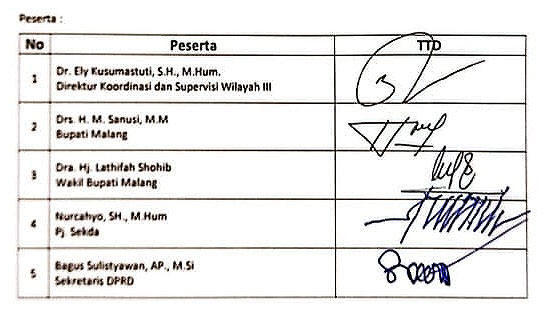 Peserta :
No Peserta TTD
1 Dr. Ely Kusumastuti, S.H., M.Hum.
Direktur Koordinasi dan Supervisi Wilayah III
2 Drs. H. M. Sanusi, M.M
Bupati Malang
3 Dra. Hj. Lathifah Shohib
Wakil Bupati Malang
4 Nurcahyo, SH., M.Hum
Pj. Sekda
5 Bagus Sulistyawan, AP., M.Si
Sekretaris DPRD